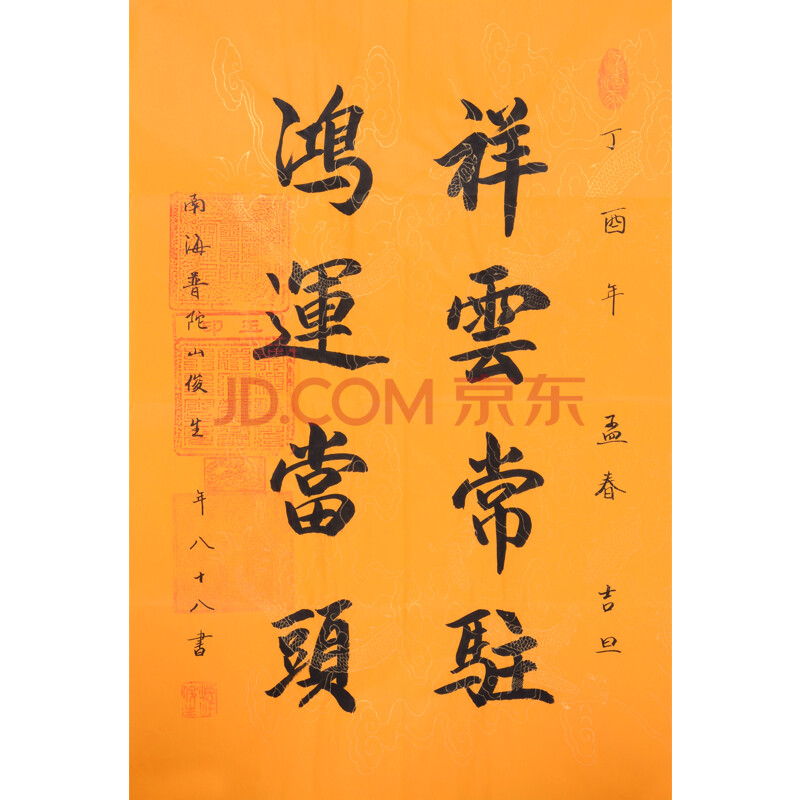 丁酉年 孟春 吉旦
祥雲常駐
鴻運當頭
南海普陀山俊生 年八十八書
JD.COM 京东